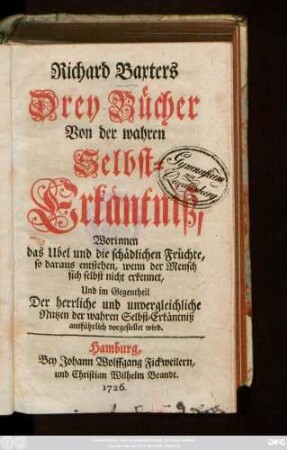 Richard Baxters
Drey Bücher
Von der wahren
Selbst-
Erkäntniß,
Worinnen
das Ubel und die schädlichen Früchte,
so daraus entstehen, wenn der Mensch
sich selbst nicht erkennet,
Und im Gegentheil
Der herrliche und unvergleichliche
Nutzen der wahren Selbst-Erkäntniß
ausführlich vorgestellet wird.
Hamburg,
Bey Johann Wolffgang Fickweilern,
und Christian Wilhelm Brandt.
1726.
Gymnasium
zu